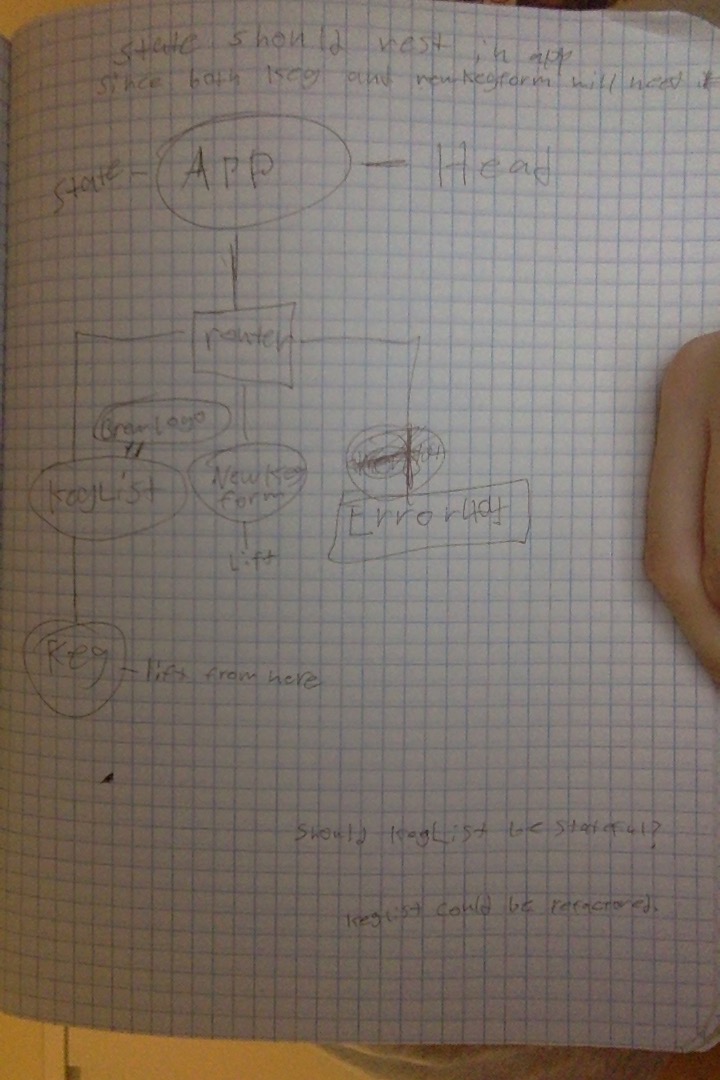 State should rest in app
since both Keg and newKegform will need it
State - App — Head
router
KegList
NewKeg
form
Error404
Lift
Keg - lift from here
Should KegList be stateful?
KegList could be refactored.